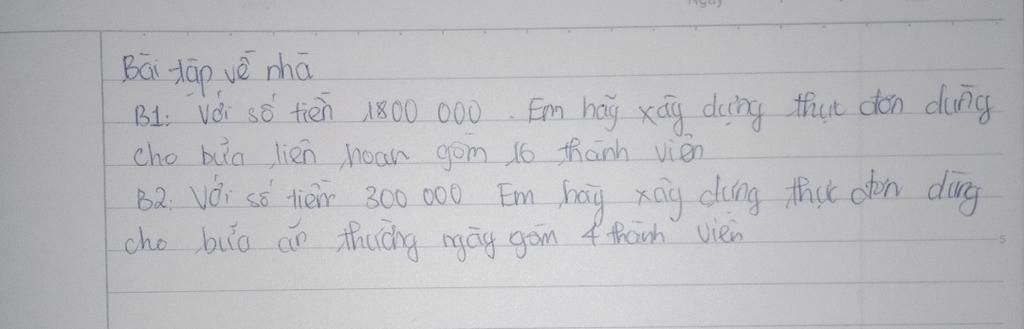 Ngày
Bài tập về nhà
B1: Với số tiền 1800 000. Em hãy xây dựng thực đơn dùng
cho bữa liên hoan gồm 16 thành viên
B2: Với số tiền 300 000 Em hãy xây dựng thực đơn dùng
cho bữa ăn thường ngày gồm 4 thành viên
5